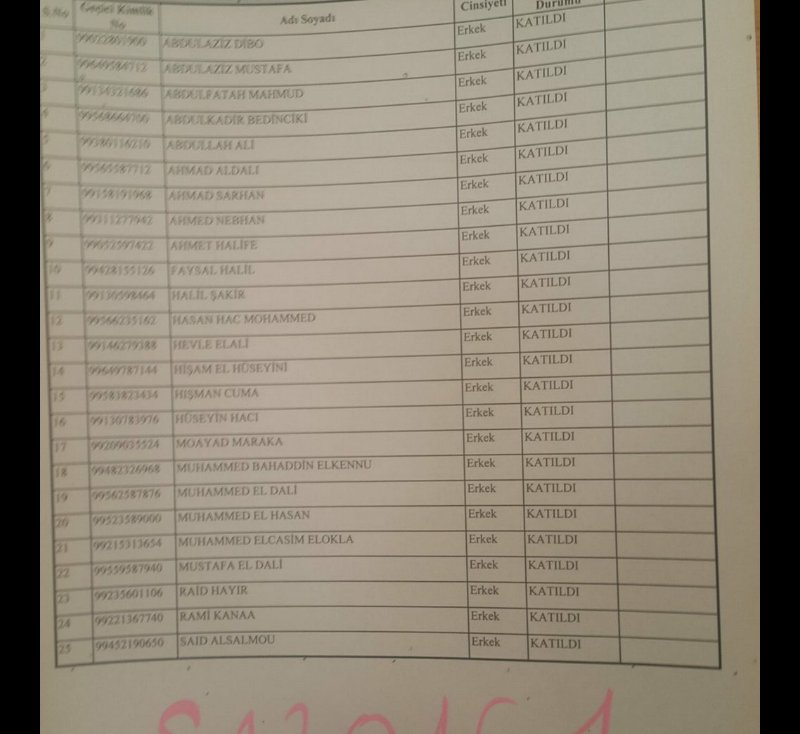 S.No Geçici Kimlik No Adı Soyadı Cinsiyeti Durumu
1 ABDULAZİZ DİBO Erkek KATILDI
2 99649584712 ABDULAZİZ MUSTAFA Erkek KATILDI
3 99134321686 ABDULFATAH MAHMUD Erkek KATILDI
4 ABDULKADİR BEDİNCİKİ Erkek KATILDI
5 99380116210 ABDULLAH ALİ Erkek KATILDI
6 99565587712 AHMAD ALDALI Erkek KATILDI
7 99158191968 AHMAD SARHAN Erkek KATILDI
8 99311277942 AHMED NEBHAN Erkek KATILDI
9 99652597422 AHMET HALİFE Erkek KATILDI
10 99428155126 FAYSAL HALİL Erkek KATILDI
11 99130598464 HALİL ŞAKİR Erkek KATILDI
12 99566235162 HASAN HAC MOHAMMED Erkek KATILDI
13 99146279388 HEVLE ELALİ Erkek KATILDI
14 99649787144 HİŞAM EL HÜSEYİNİ Erkek KATILDI
15 99583823434 HIŞMAN CUMA Erkek KATILDI
16 99130783976 HÜSEYİN HACI Erkek KATILDI
17 99209035524 MOAYAD MARAKA Erkek KATILDI
18 99482326968 MUHAMMED BAHADDİN ELKENNU Erkek KATILDI
19 99562587876 MUHAMMED EL DALİ Erkek KATILDI
20 99523589000 MUHAMMED EL HASAN Erkek KATILDI
21 99215313654 MUHAMMED ELCASİM ELOKLA Erkek KATILDI
22 99559587940 MUSTAFA EL DALİ Erkek KATILDI
23 99235601106 RAİD HAYIR Erkek KATILDI
24 99221367740 RAMİ KANAA Erkek KATILDI
25 99452190650 SAID ALSALMOU Erkek KATILDI